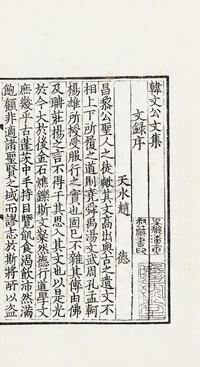 韓文公文集
文録序
天水趙德
昌黎公聖人之徒歟其文高出與古之遺文不
相上下所履之道則堯舜禹湯文武周孔孟軻
楊雄所授受服行之實也固已不雜其傳由佛
及聃莊楊之言不得干其思入其文也以是光
於今大於後金石燋鑠斯文粲然德行道學文
庶幾乎古蓬茨中手持目覽飢食渴飲沛然滿
飽顧非適諸聖賢之域而謬志於斯將所以盜